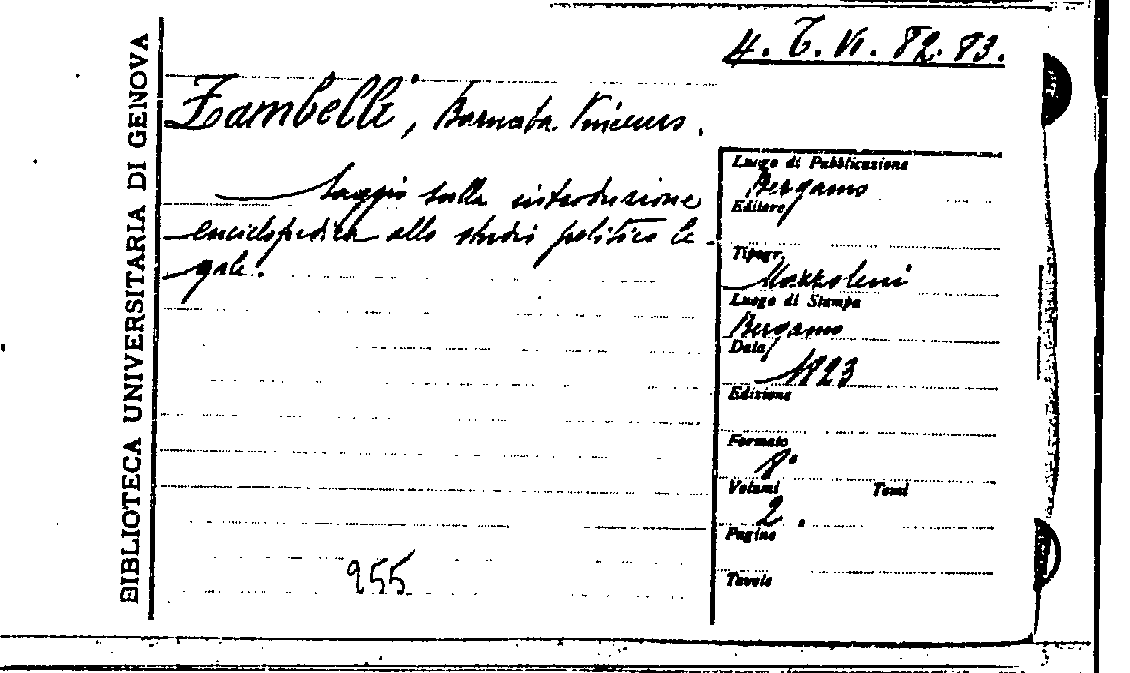 BIBLIOTECA UNIVERSITARIA DI GENOVA
4. T. VI. 82. 83.
Zambelli, Barnaba Vincenzo.
Saggio sulla introduzione
enciclopedica allo studio politico le-
gale.
955
Luogo di Pubblicazione
Bergamo
Editore
Tipogr.
Mazzoleni
Luogo di Stampa
Bergamo
Data
1823
Edizione
Formato
8°
Volumi Tomi
2.
Pagine
Tavole